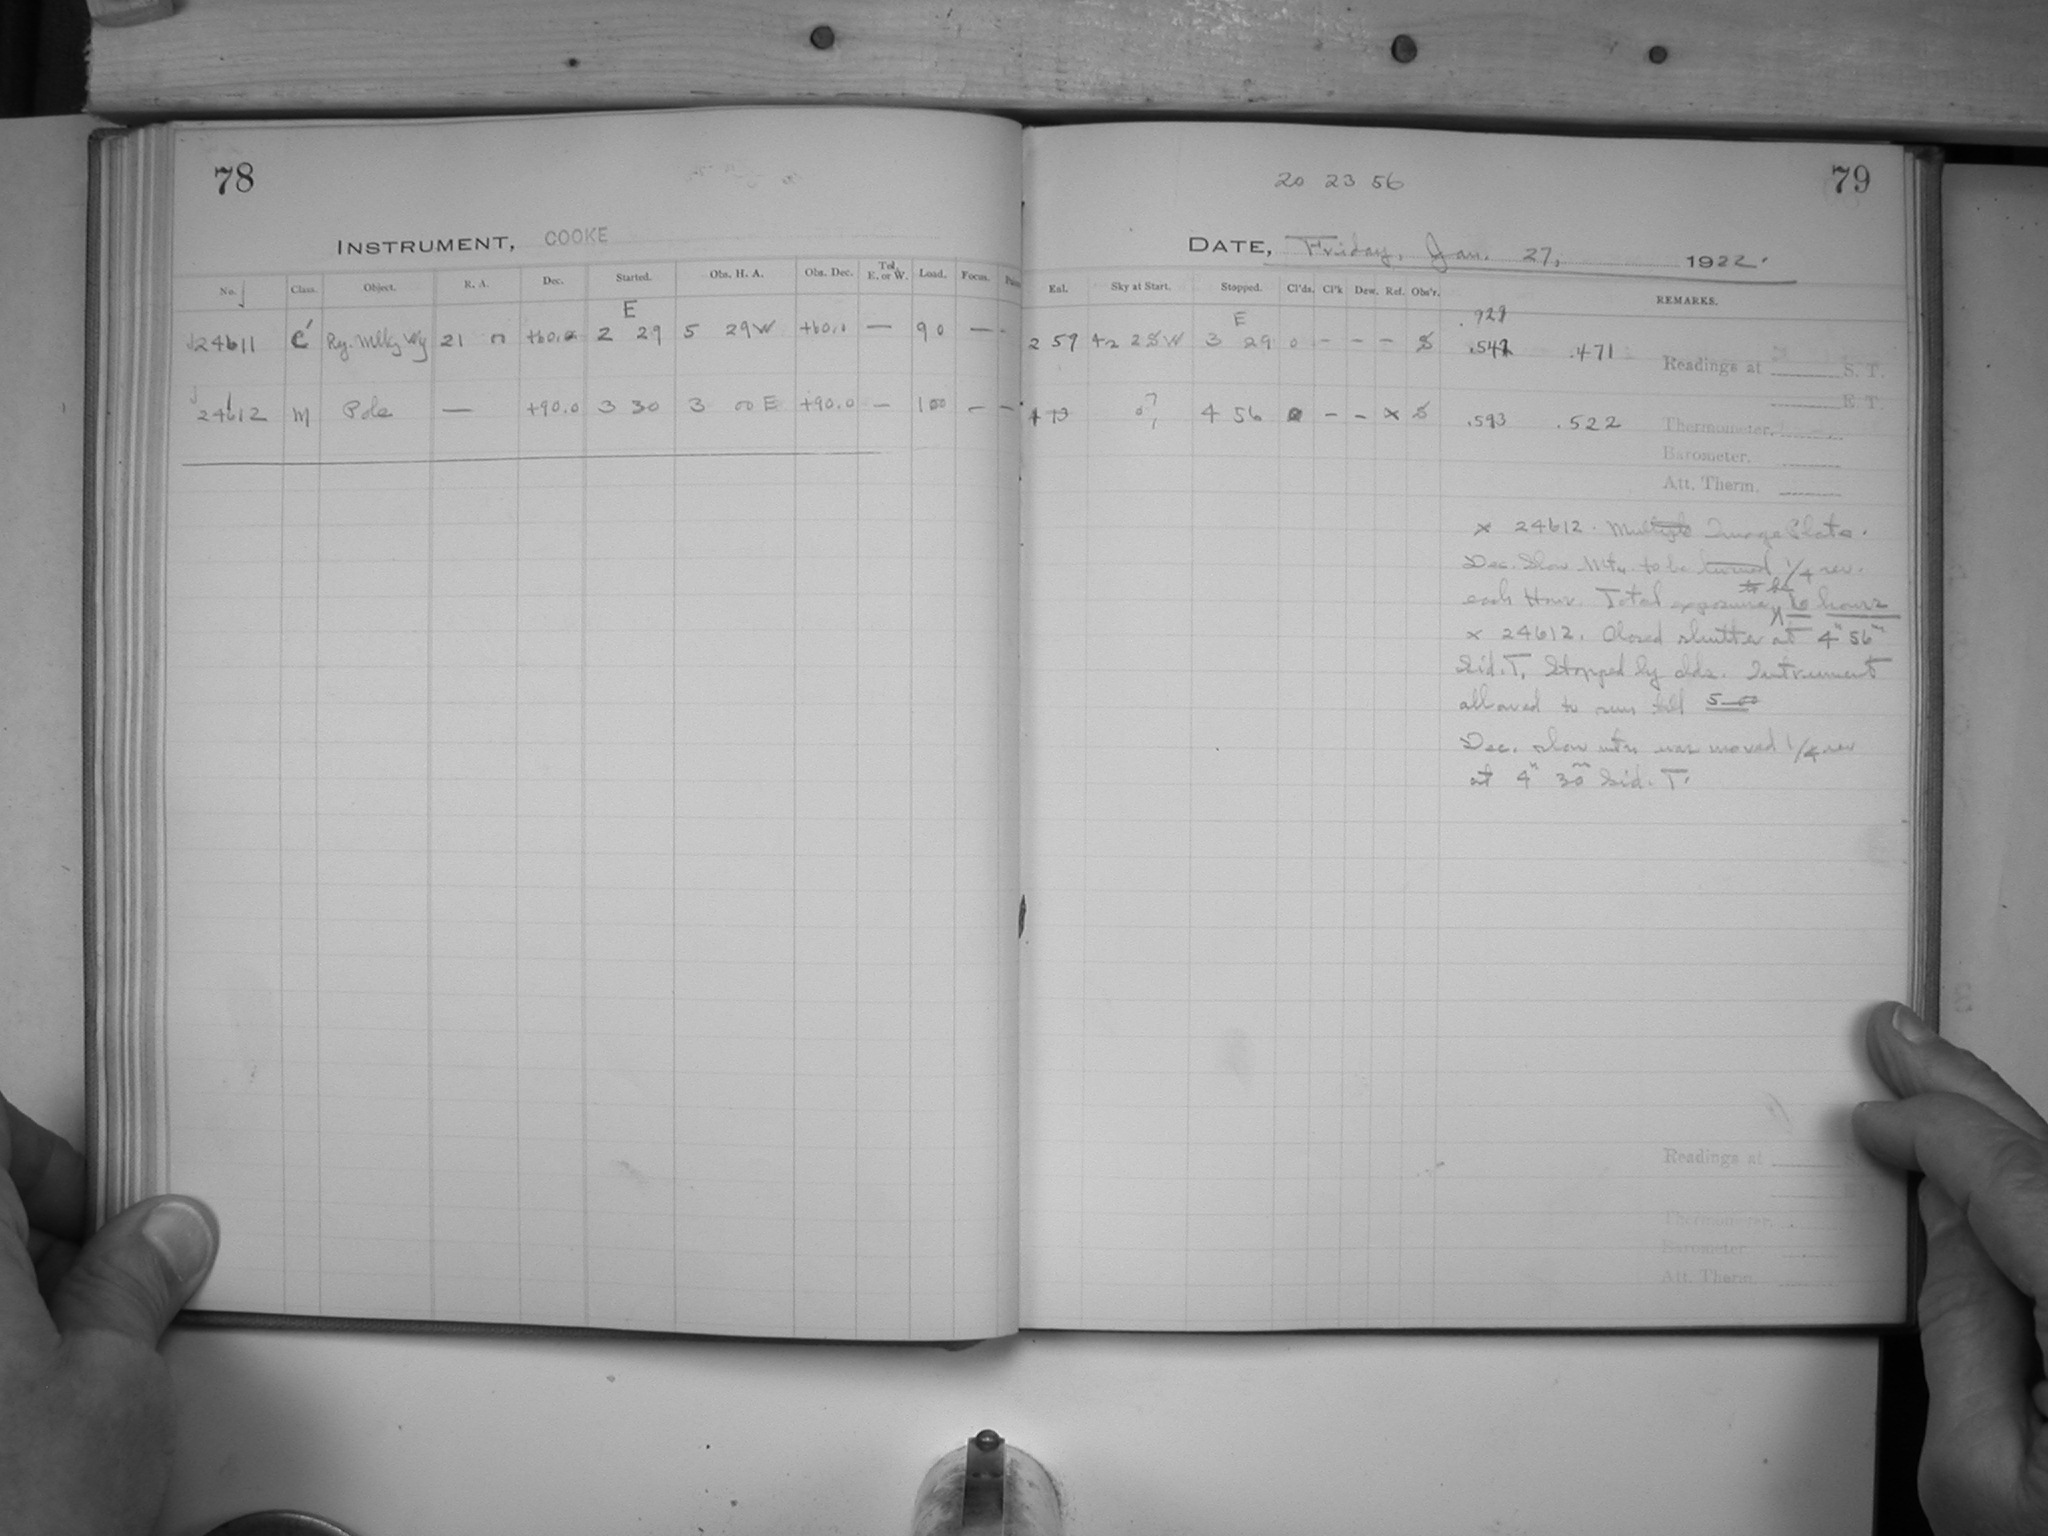 78
INSTRUMENT, COOKE
No. Class. Object. R. A. Dec. Started. Obs. H. A. Obs. Dec. Tel. E. or W. Load. Focus.
E
24611 C' Rg. Mlky Wy 21 n +60.0 2 29 5 29 W +60.0 — 90 — -
24612 M Pole — +90.0 3 30 3 00 E +90.0 — 100 — —
20 23 56
79
DATE, Friday, Jan. 27, 1922.
Exl. Sky at Start. Stopped. Cl'ds. Cl'k Dew. Ref. Obs'r. REMARKS.
E
.929
2 59 +2 28 W 3 29 0 - - - S .542 .471
Readings at S. T.
E. T.
4 56 - - x S .593 .522
Thermometer,
Barometer.
Att. Therm.
x 24612. Multiple Image Plate.
Dec. Slow Mtn. to be turned 1/4 rev.
each Hour. Total exposure to be 6 hours
x 24612. Closed shutter at 4h 56m
Sid. T. Stopped by clds. Instrument
allowed to run till 5 00
Dec. slow mtn was moved 1/4 rev
at 4h 30m Sid. T.
Readings at
Thermometer,
Barometer.
Att. Therm.